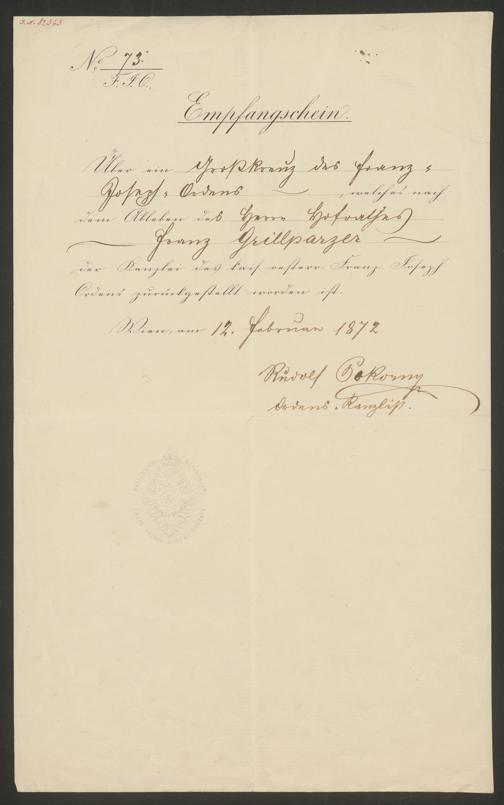 No 73.
F. J. O.
Empfangschein.
Über ein Großkreuz des Franz-
Joseph-Ordens, welches nach
dem Ableben des Herrn Hofrathes
Franz Grillparzer
der Kanzlei des kais. oesterr. Franz Joseph
Ordens zurückgestellt worden ist.
Wien, am 12. Februar 1872
Rudolf Pokorny
Ordens-Kanzlist.